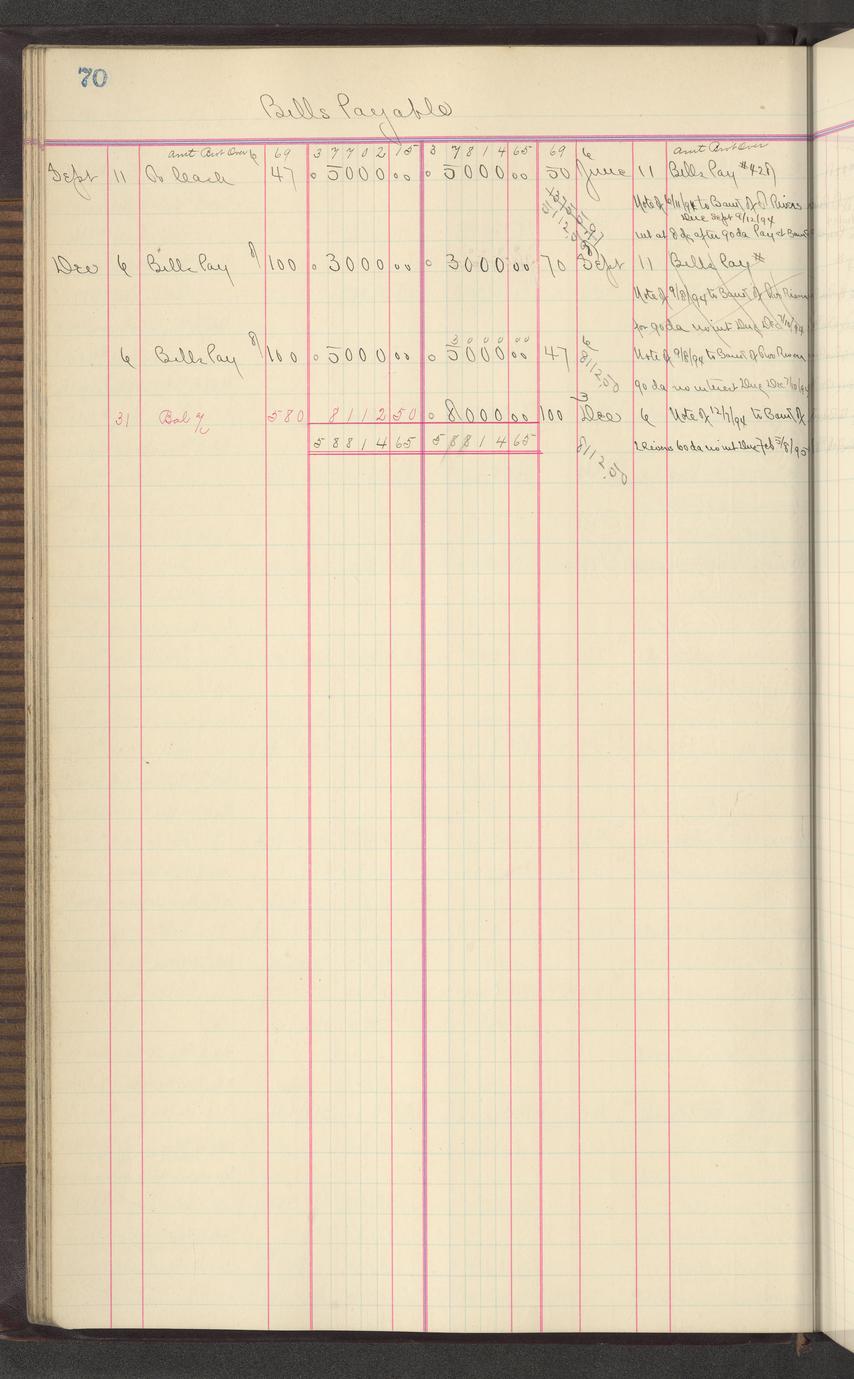 70
Bills Payable
Amt Brot Over 69 37702 15 37814 65 69 6 Amt Brot Over
Sept 11 To Cash 47 5000 00 5000 00 50 June 11 Bills Pay #428
Note of 6/11/94 to Bank of Rivers
Due Sept 9/12/94
int at 8% after 90 da Pay at Bank
Dec 6 Bills Pay 100 3000 00 3000 00 70 Sept 11 Bills Pay #
5112.50
Note of 9/8/94 to Bank of Rivers
for 90 da no int Due Dec
3000 00
6 Bills Pay 100 5000 00 5000 00 47 6 Note of 9/8/94 to Bank of Rivers
8112.50
90 da no interest Due Dec
31 Bal 580 8112 50 8000 00 100 Dec 6 Note of 12/7/94 to Bank of
58814 65 58814 65 2 Rivers 60 da no int Due Feb 5/8/95
8112.50